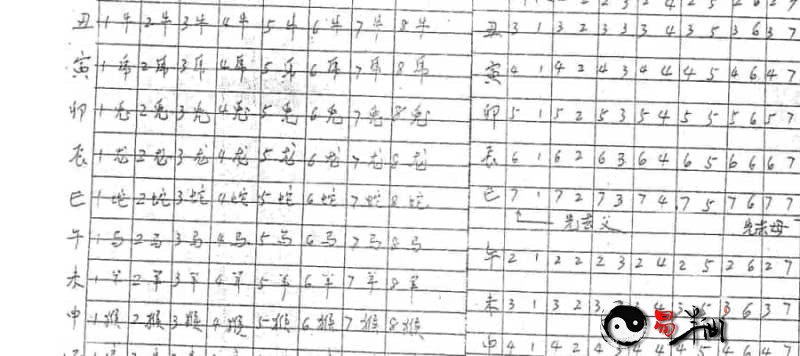 丑 1牛 2牛 3牛 4牛 5牛 6牛 7牛 8牛
寅 1虎 2虎 3虎 4虎 5虎 6虎 7虎 8虎
卯 1兔 2兔 3兔 4兔 5兔 6兔 7兔 8兔
辰 1龙 2龙 3龙 4龙 5龙 6龙 7龙 8龙
巳 1蛇 2蛇 3蛇 4蛇 5蛇 6蛇 7蛇 8蛇
午 1马 2马 3马 4马 5马 6马 7马 8马
未 1羊 2羊 3羊 4羊 5羊 6羊 7羊 8羊
申 1猴 2猴 3猴 4猴 5猴 6猴 7猴 8猴
丑 3 1 3 2 3 3 3 4 3 5 3 6 3 7
寅 4 1 4 2 4 3 4 4 4 5 4 6 4 7
卯 5 1 5 2 5 3 5 4 5 5 5 6 5 7
辰 6 1 6 2 6 3 6 4 6 5 6 6 6 7
巳 7 1 7 2 7 3 7 4 7 5 7 6 7 7
先亡父 先亡母
午 2 1 2 2 2 3 2 4 2 5 2 6 2 7
未 3 1 3 2 3 3 4 3 5 3 6 3 7
申 4 1 4 2 4 4 4 4 5 4 6 4 7
易